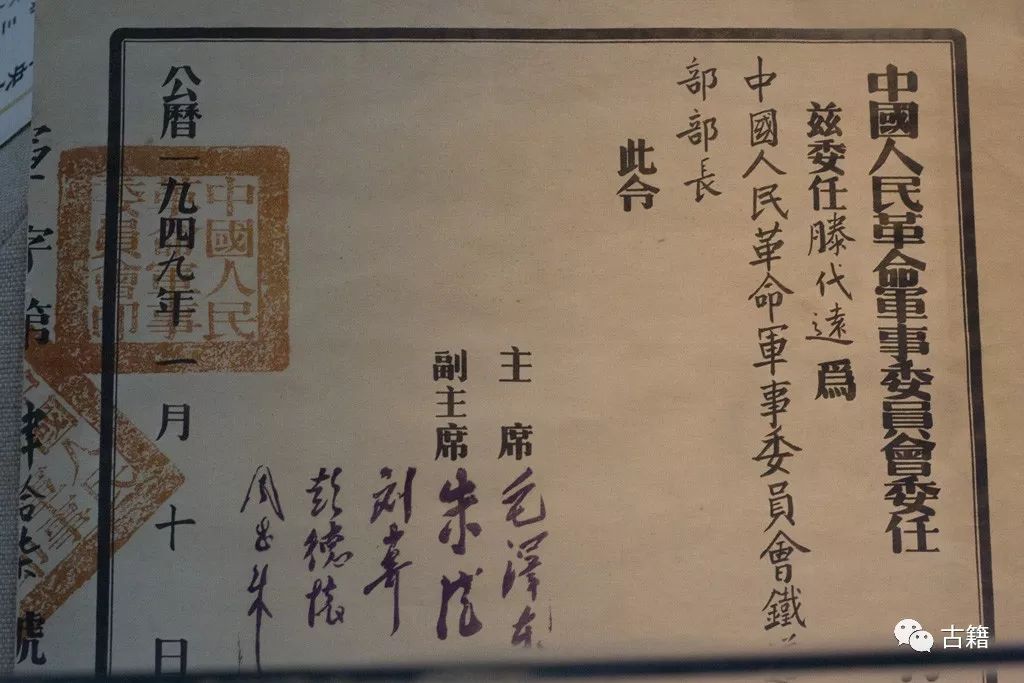 中國人民革命軍事委員會委任
茲委任滕代遠爲
中國人民革命軍事委員會鐵
部部長
此令
主席 毛澤东
副主席 朱德
刘少奇
彭德懷
周恩来
公曆一九四九年一月十日
中國人民
革命軍事
委員會印
字第 號
古籍